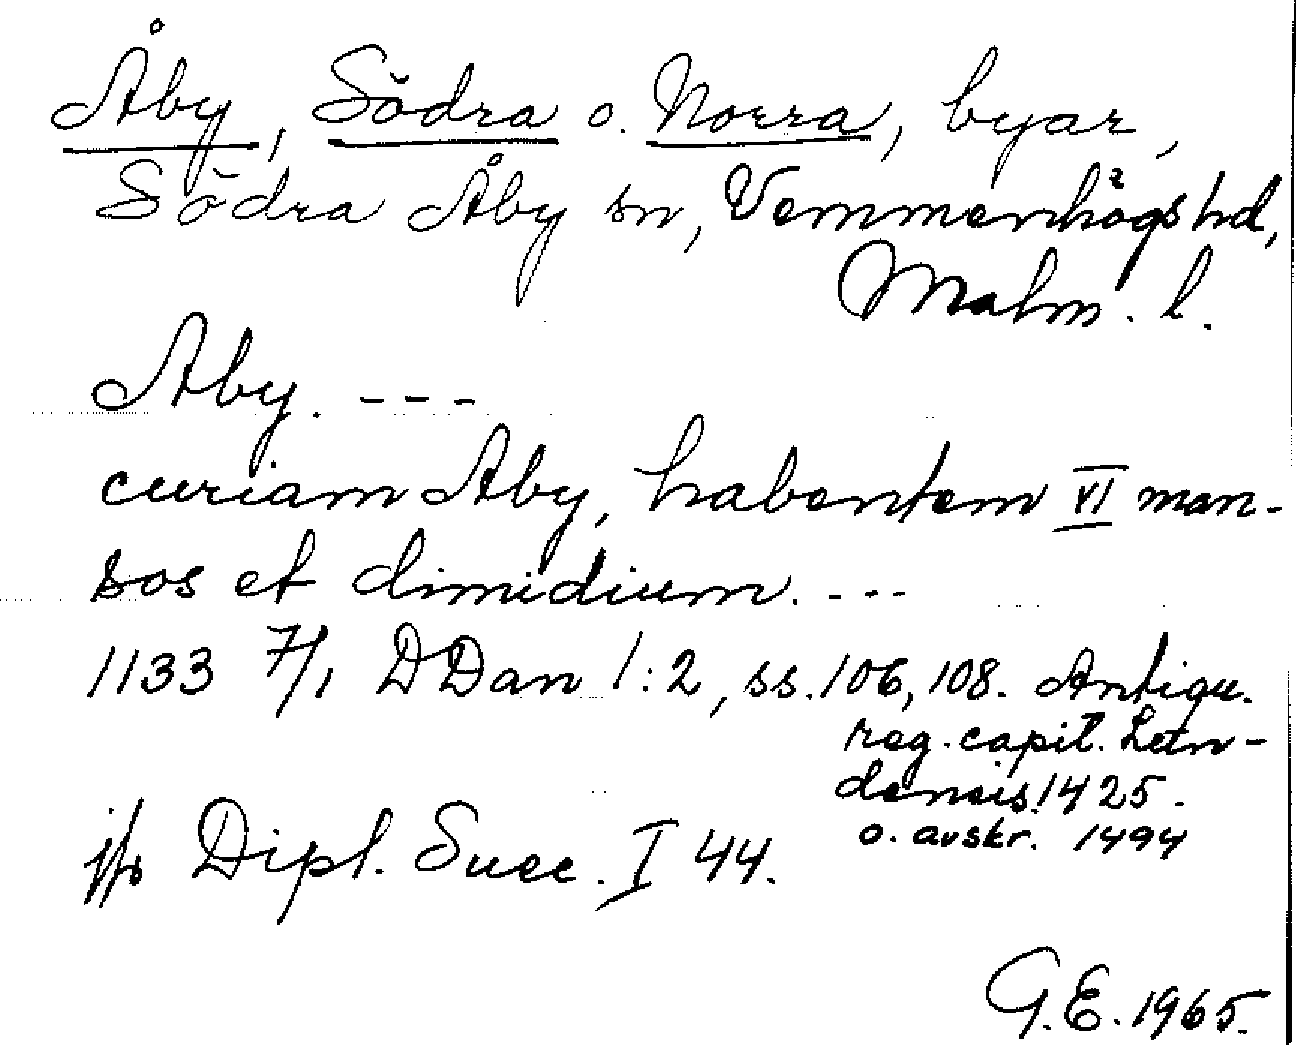 Åby, Södra o. Norra, byar,
Södra Åby sn, Vemmenhögs hd,
Malm. l.
Aby. ---
curiam Aby, habentem VI man-
sos et dimidium. ---
1133 7/1 DDan 1:2, ss. 106, 108. Antiqu.
reg. capit. Lun-
densis 1425.
o. avskr. 1494
jfr Dipl. Suec. I 44.
G.E. 1965.